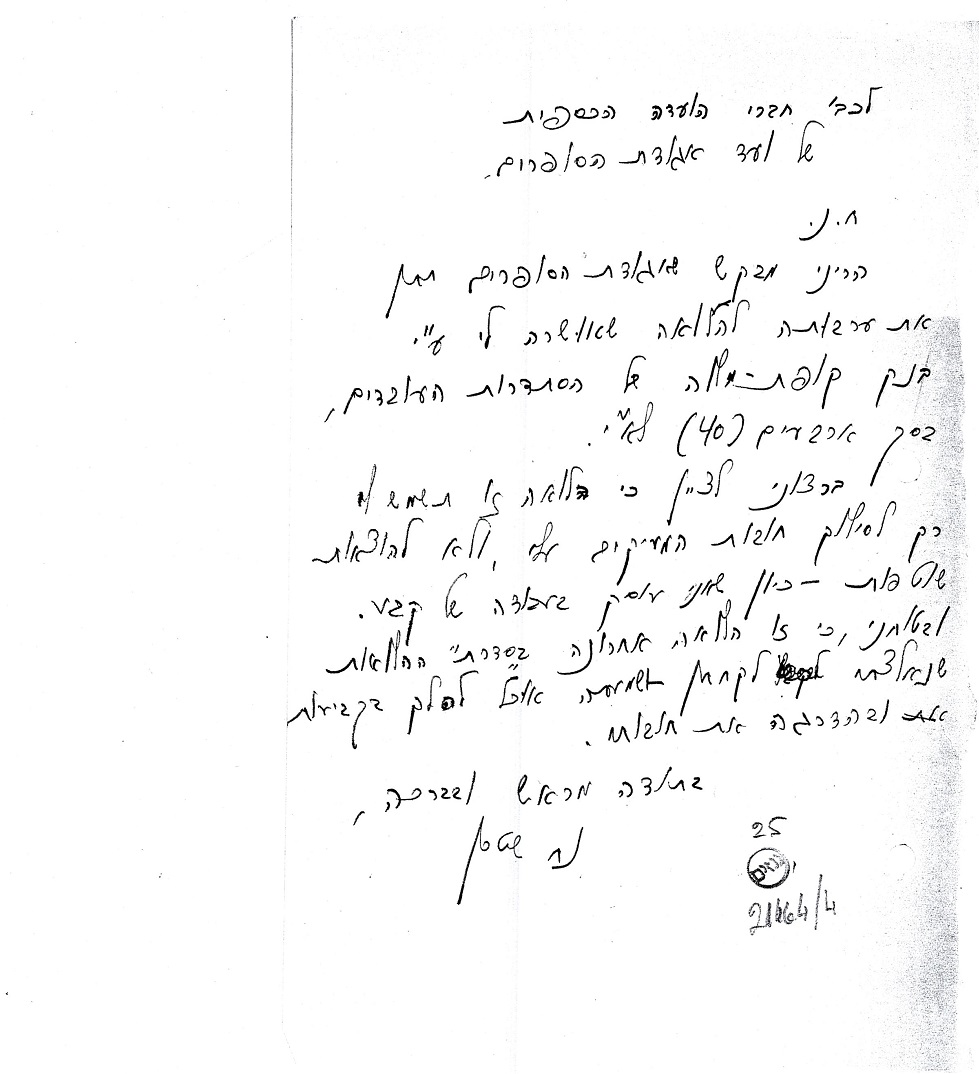 לכב' חברי הועדה הכספית
של ועד אגודת הסופרים,
ח.נ.
הריני מבקש שאגודת הסופרים תתן
את ערבותה להלוואה שאושרה לי ע"י
בנק קופת-מלוה של הסתדרות העובדים,
בסך ארבעים (40) לא"י.
ברצוני לציין כי הלואה זו תשמש לי
רק לסילוק חובות המעיקים עלי, ולא להוצאות
שוטפות – כיון שאני עוסק בעבודה של קבע.
ובטוחני, כי זו הלואה אחרונה ב"סדרת" ההלואות
שנאלצתי לקחתן ושמעתה אוכל לסלק בקביעות
ובהדרגה את חובותי.
בתודה מראש ובברכה,
נח שטרן
25
גנזים
21464/4